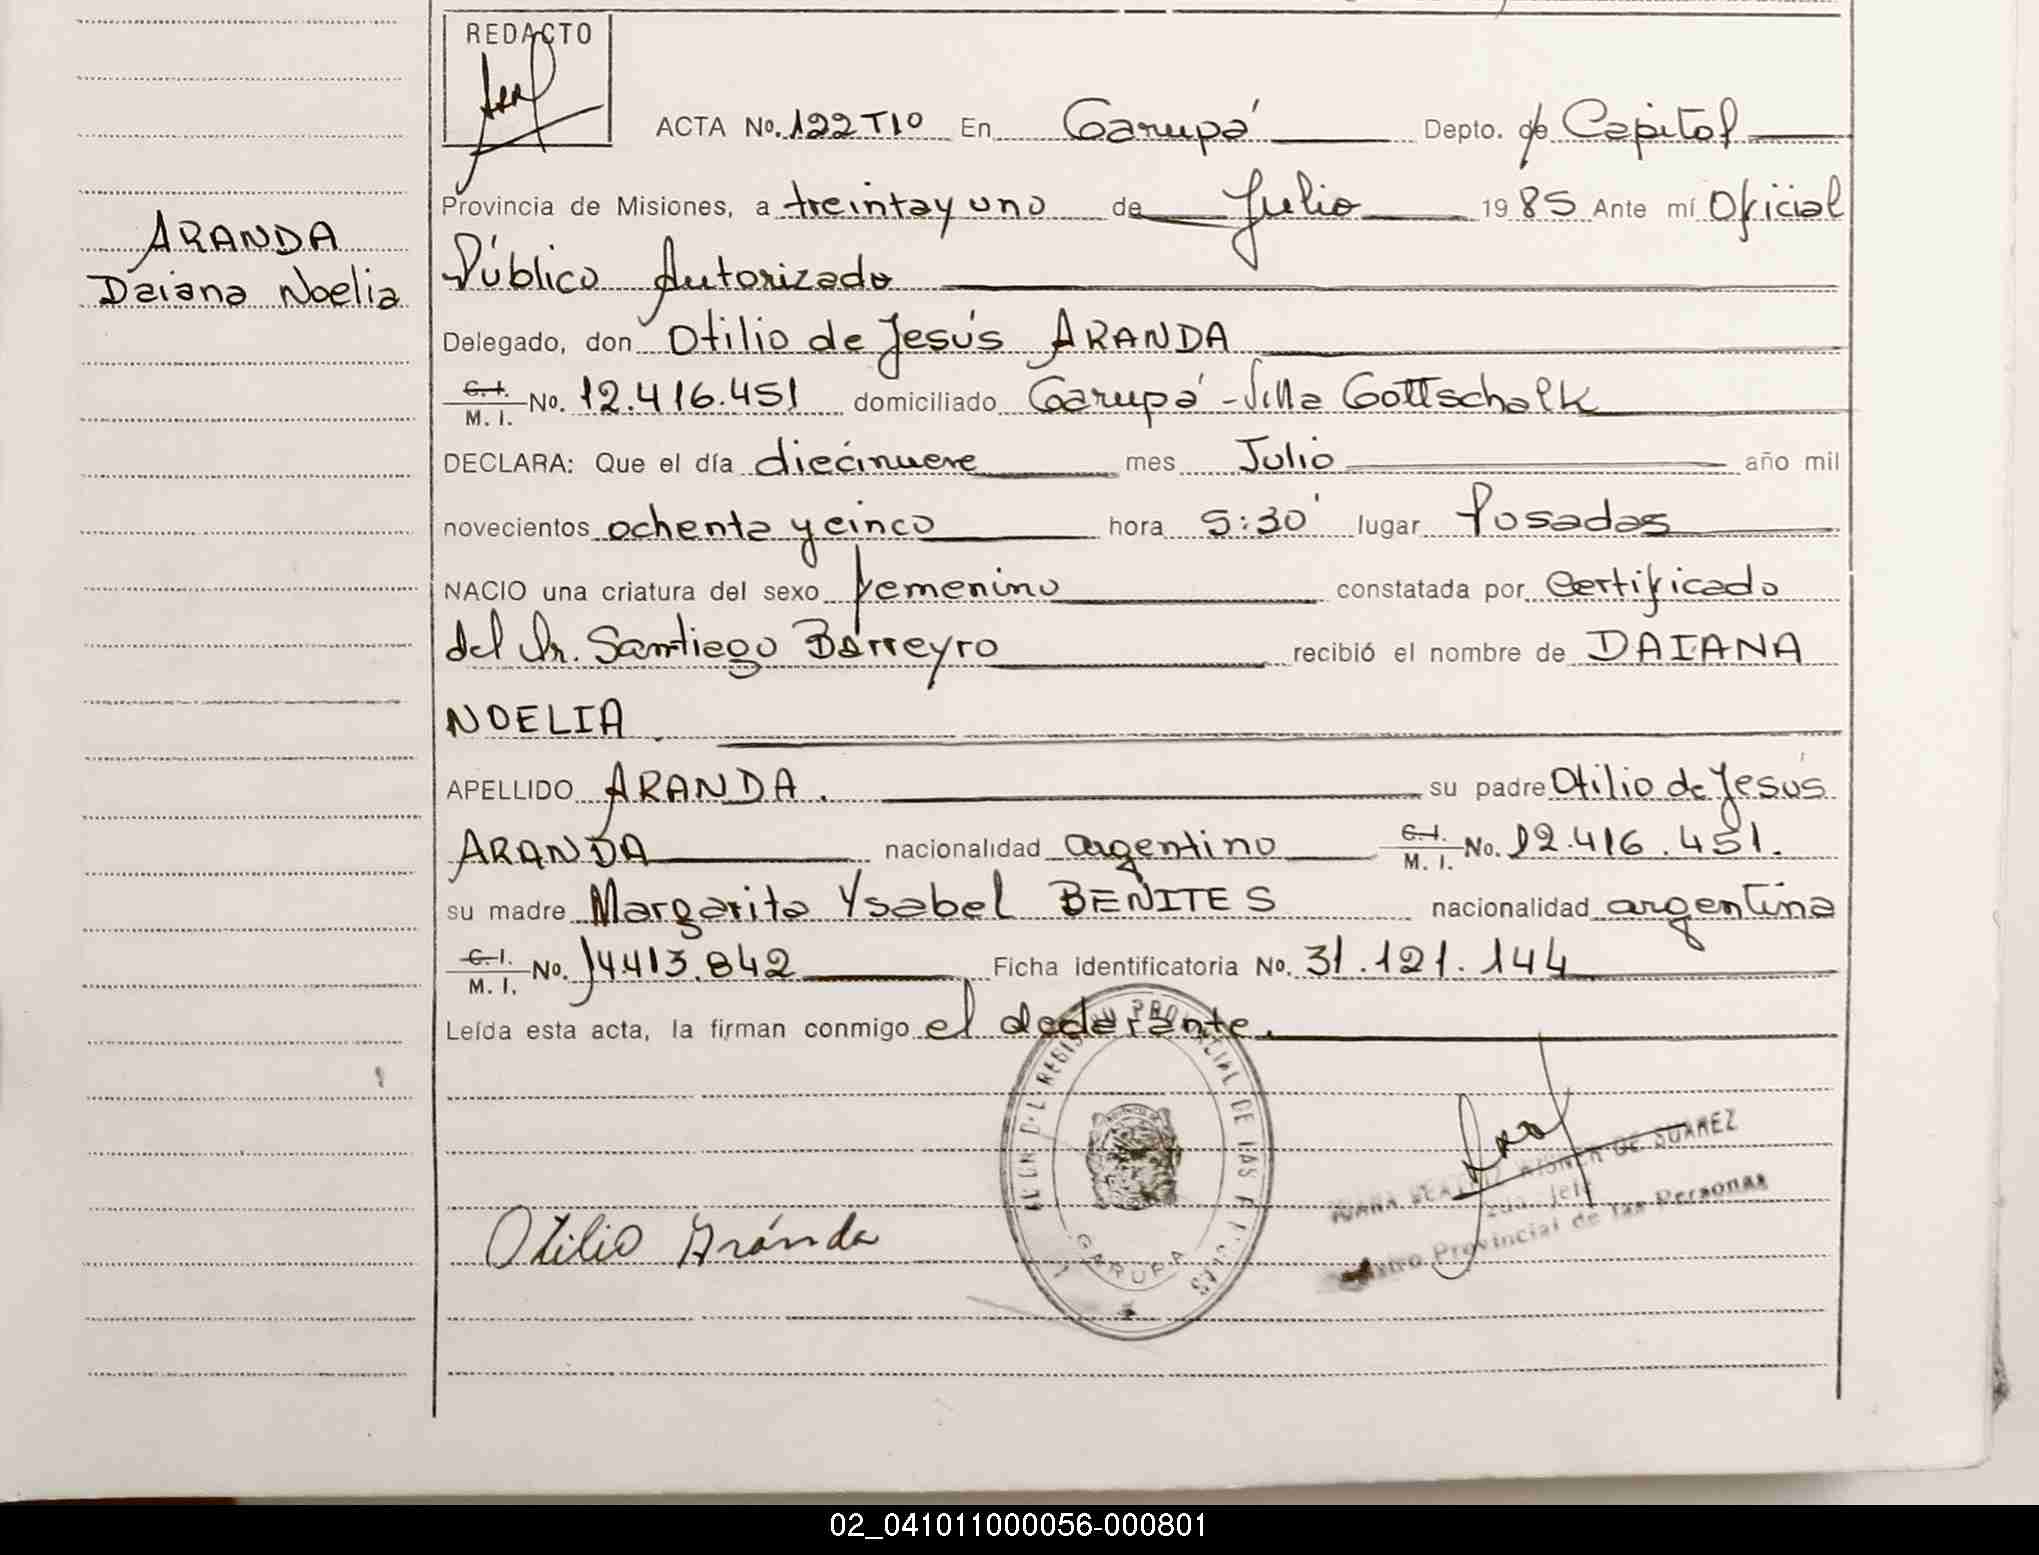 REDACTO
ACTA No. 122 T10 En Garupá Depto. de Capital
Provincia de Misiones, a treinta y uno de Julio 1985 Ante mí Oficial
ARANDA
Daiana Noelia
Público Autorizado
Delegado, don Otilio de Jesús ARANDA
C. I.
M. I. No. 12.416.451 domiciliado Garupá - Villa Gottschalk
DECLARA: Que el día diecinueve mes Julio año mil
novecientos ochenta y cinco hora 5:30' lugar Posadas
NACIO una criatura del sexo femenino constatada por certificado
del Dr. Santiego Barreyro recibió el nombre de DAIANA
NOELIA
APELLIDO ARANDA. su padre Otilio de Jesús
ARANDA nacionalidad argentino C. I. M. I. No. 12.416.451.
su madre Margarita Ysabel BENITES nacionalidad argentina
C. I.
M. I. No. 14413.842 Ficha identificatoria No. 31.121.144
Leída esta acta, la firman conmigo el declarante.
REGISTRO PROVINCIAL DE LAS PERSONAS
GARUPA
DE SUAREZ
Provincial de las Personas
Otilio Aránda
02_041011000056-000801